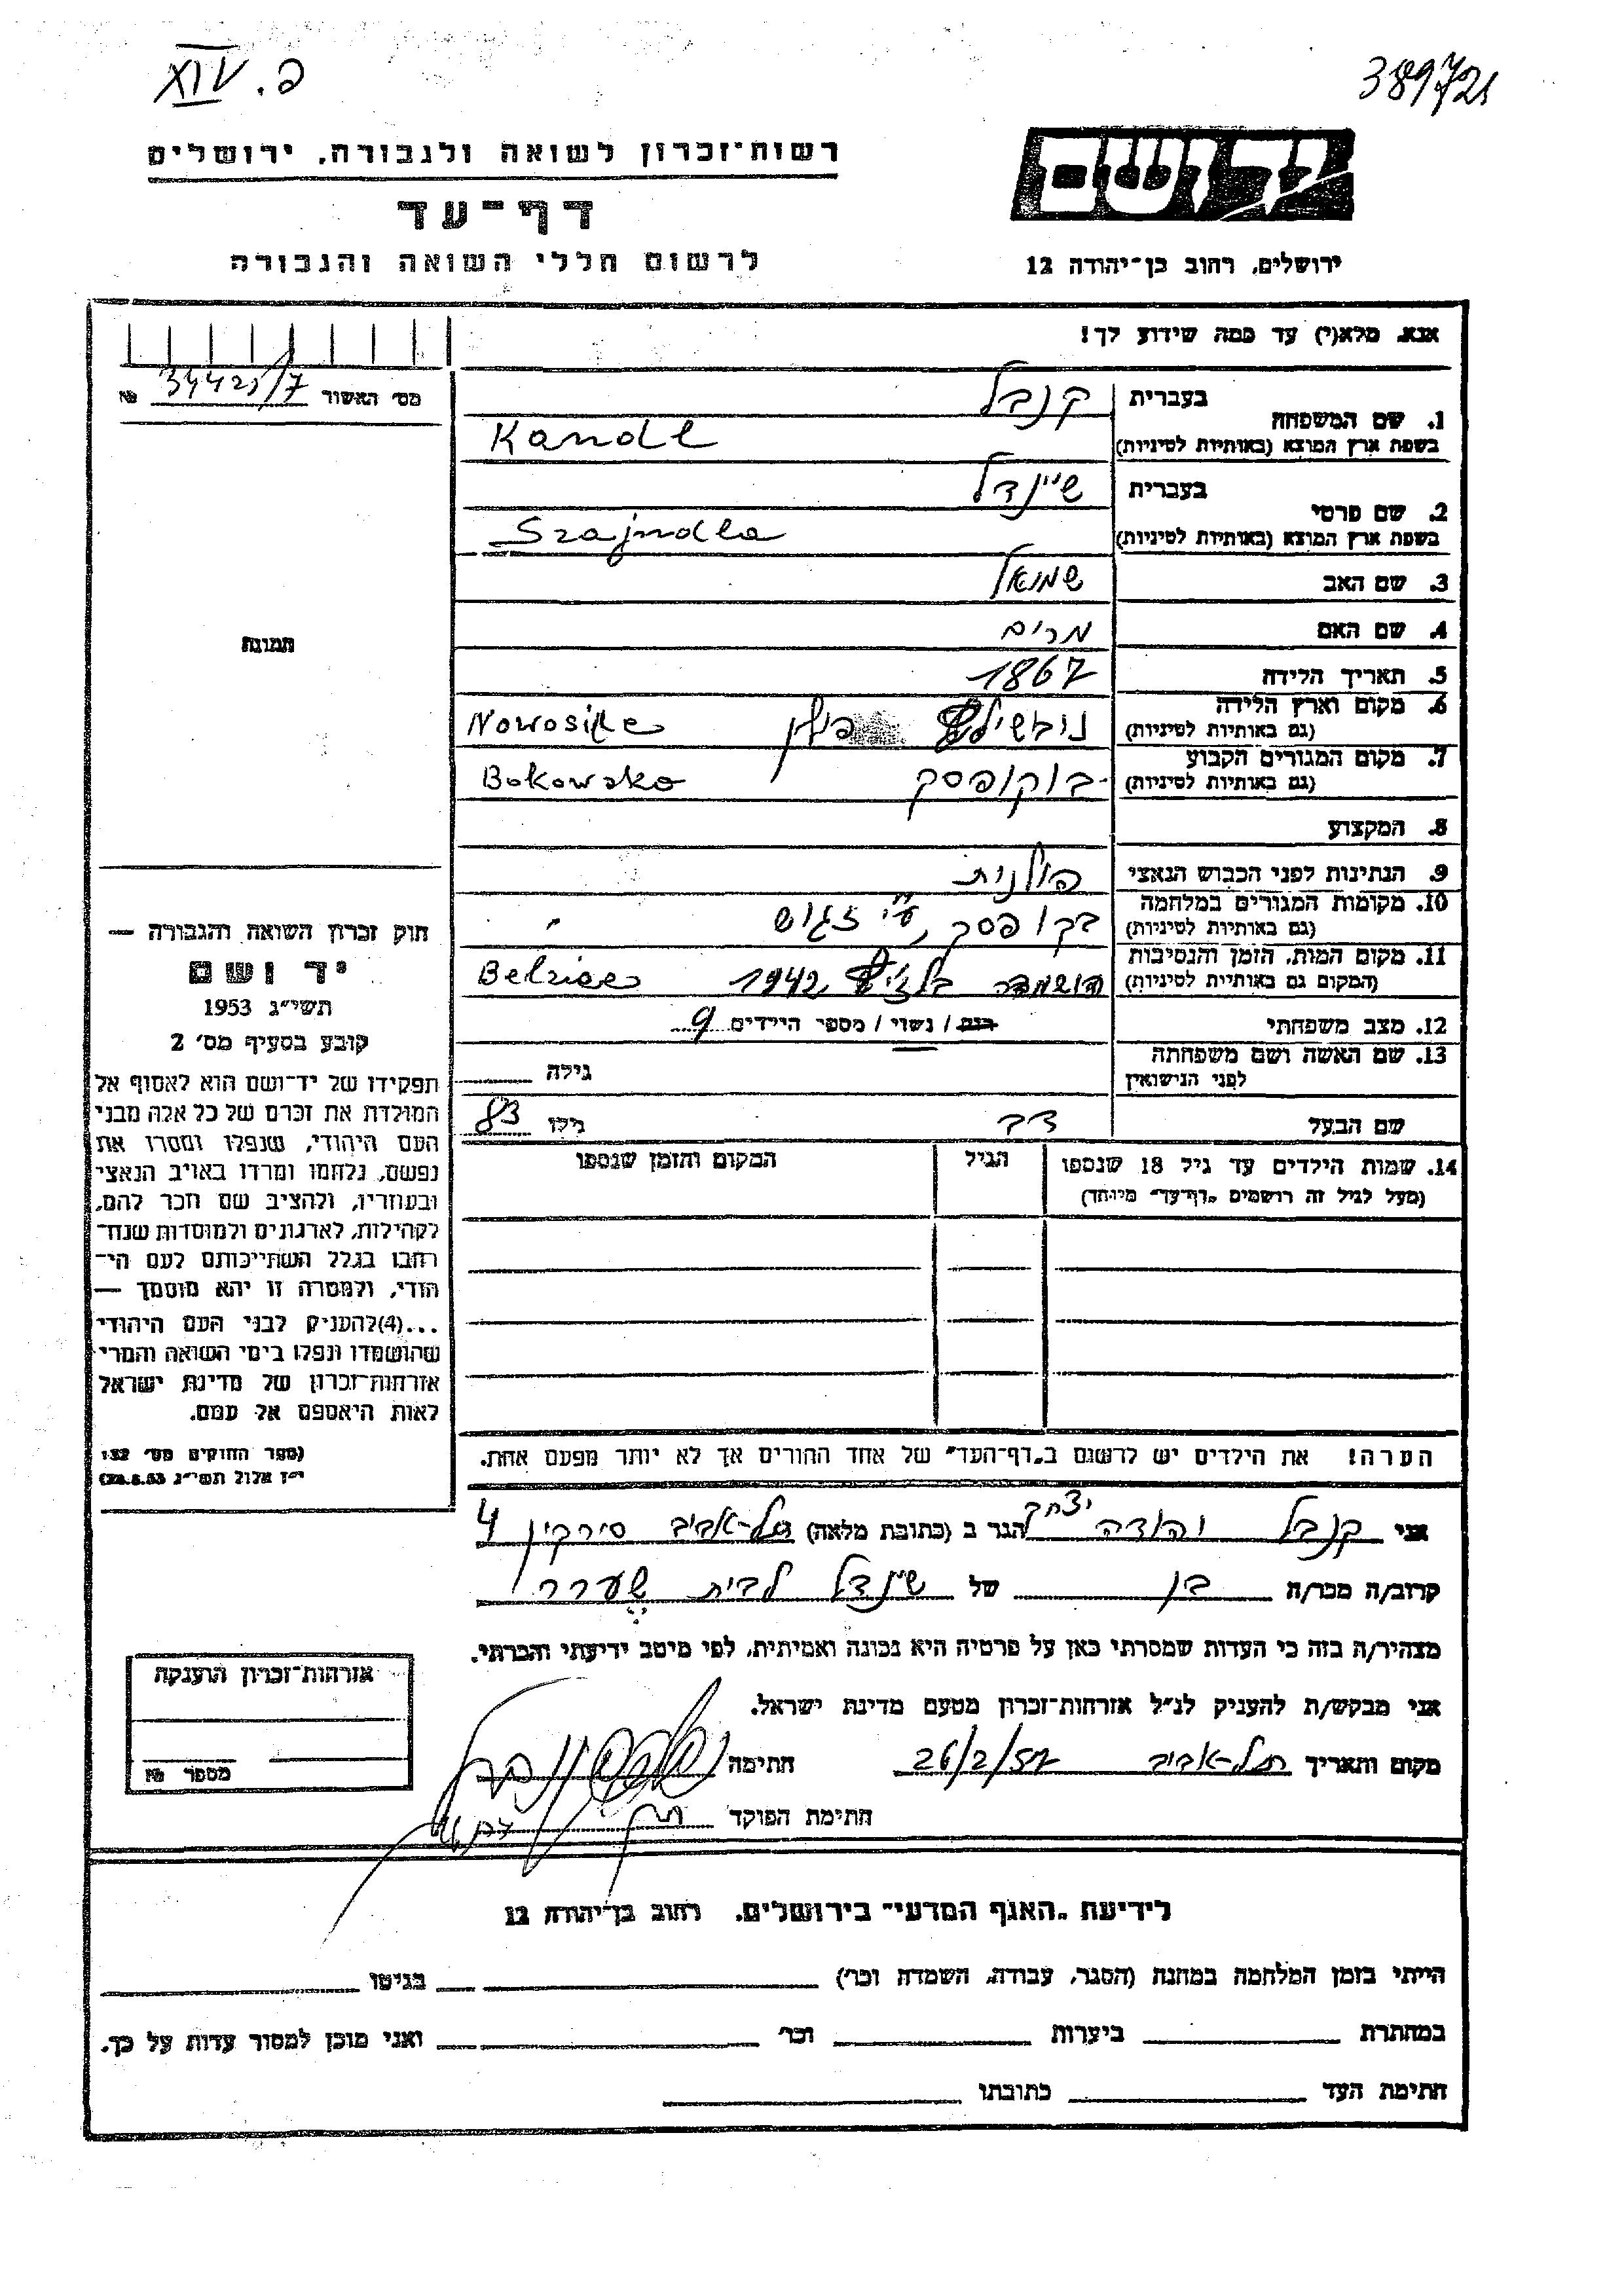 XIV. פ
389721
רשות־זכרון לשואה ולגבורה, ירושלים
דף־עד
לרשום חללי השואה והגבורה
יד ושם
ירושלים, רחוב בן־יהודה 12
אנא, מלא(י) עד כמה שידוע לך!
מס׳ האשור 34425/7 №
תמונה
1. שם המשפחה בעברית קנדל
בשפת ארץ המוצא (באותיות לטיניות) Kandl
2. שם פרטי בעברית שיינדל
בשפת ארץ המוצא (באותיות לטיניות) Szajndla
3. שם האב שמואל
4. שם האם מרים
5. תאריך הלידה 1867
6. מקום וארץ הלידה פולין
(גם באותיות לטיניות)
7. מקום המגורים הקבוע בוקופסק
(גם באותיות לטיניות) Bokowsko
8. המקצוע
9. הנתינות לפני הכבוש הנאצי פולנית
10. מקומות המגורים במלחמה בקופסק, ע״י
(גם באותיות לטיניות)
11. מקום המות, הזמן והנסיבות הושמדה 1942
(המקום גם באותיות לטיניות)
12. מצב משפחתי רוק / נשוי / מספר הילדים 9
13. שם האשה ושם משפחתה
לפני הנישואין גילה
שם הבעל דב גילו 83
14. שמות הילדים עד גיל 18 שנספו הגיל המקום והזמן שנספו
(מעל לגיל זה רושמים „דף־עד״ מיוחד)
הערה! את הילדים יש לרשום ב„דף־העד״ של אחד ההורים אך לא יותר מפעם אחת.
חוק זכרון השואה והגבורה —
יד ושם
תשי״ג 1953
קובע בסעיף מס׳ 2
תפקידו של יד־ושם הוא לאסוף אל
המולדת את זכרם של כל אלה מבני
העם היהודי, שנפלו ומסרו את
נפשם, נלחמו ומרדו באויב הנאצי
ובעוזריו, ולהציב שם וזכר להם,
לקהילות, לארגונים ולמוסדות שנח־
רבו בגלל השתייכותם לעם הי־
הודי, ולמטרה זו יהא מוסמך —
...(4)להעניק לבני העם היהודי
שהושמדו ונפלו בימי השואה והמרי
אזרחות־זכרון של מדינת ישראל
לאות היאספם אל עמם.
(ספר החוקים מס׳ 132
י״ז אלול תשי״ג 28.8.53)
אני קנדל יהודה יצחק הגר ב (כתובת מלאה) תל־אביב סירקין 4
קרוב/ה מכר/ה בן של שינדל לבית
מצהיר/ה בזה כי העדות שמסרתי כאן על פרטיה היא נכונה ואמיתית, לפי מיטב ידיעתי והכרתי.
אני מבקש/ת להעניק לנ״ל אזרחות־זכרון מטעם מדינת ישראל.
מקום ותאריך תל־אביב 26/2/57 חתימה
חתימת הפוקד
אזרחות־זכרון הוענקה
מספר №
לידיעת „האגף המדעי״ בירושלים, רחוב בן־יהודה 12
הייתי בזמן המלחמה במחנה (הסגר, עבודה, השמדה וכו׳) בגיטו
במחתרת ביערות וכו׳ ואני מוכן למסור עדות על כך.
חתימת העד כתובתו